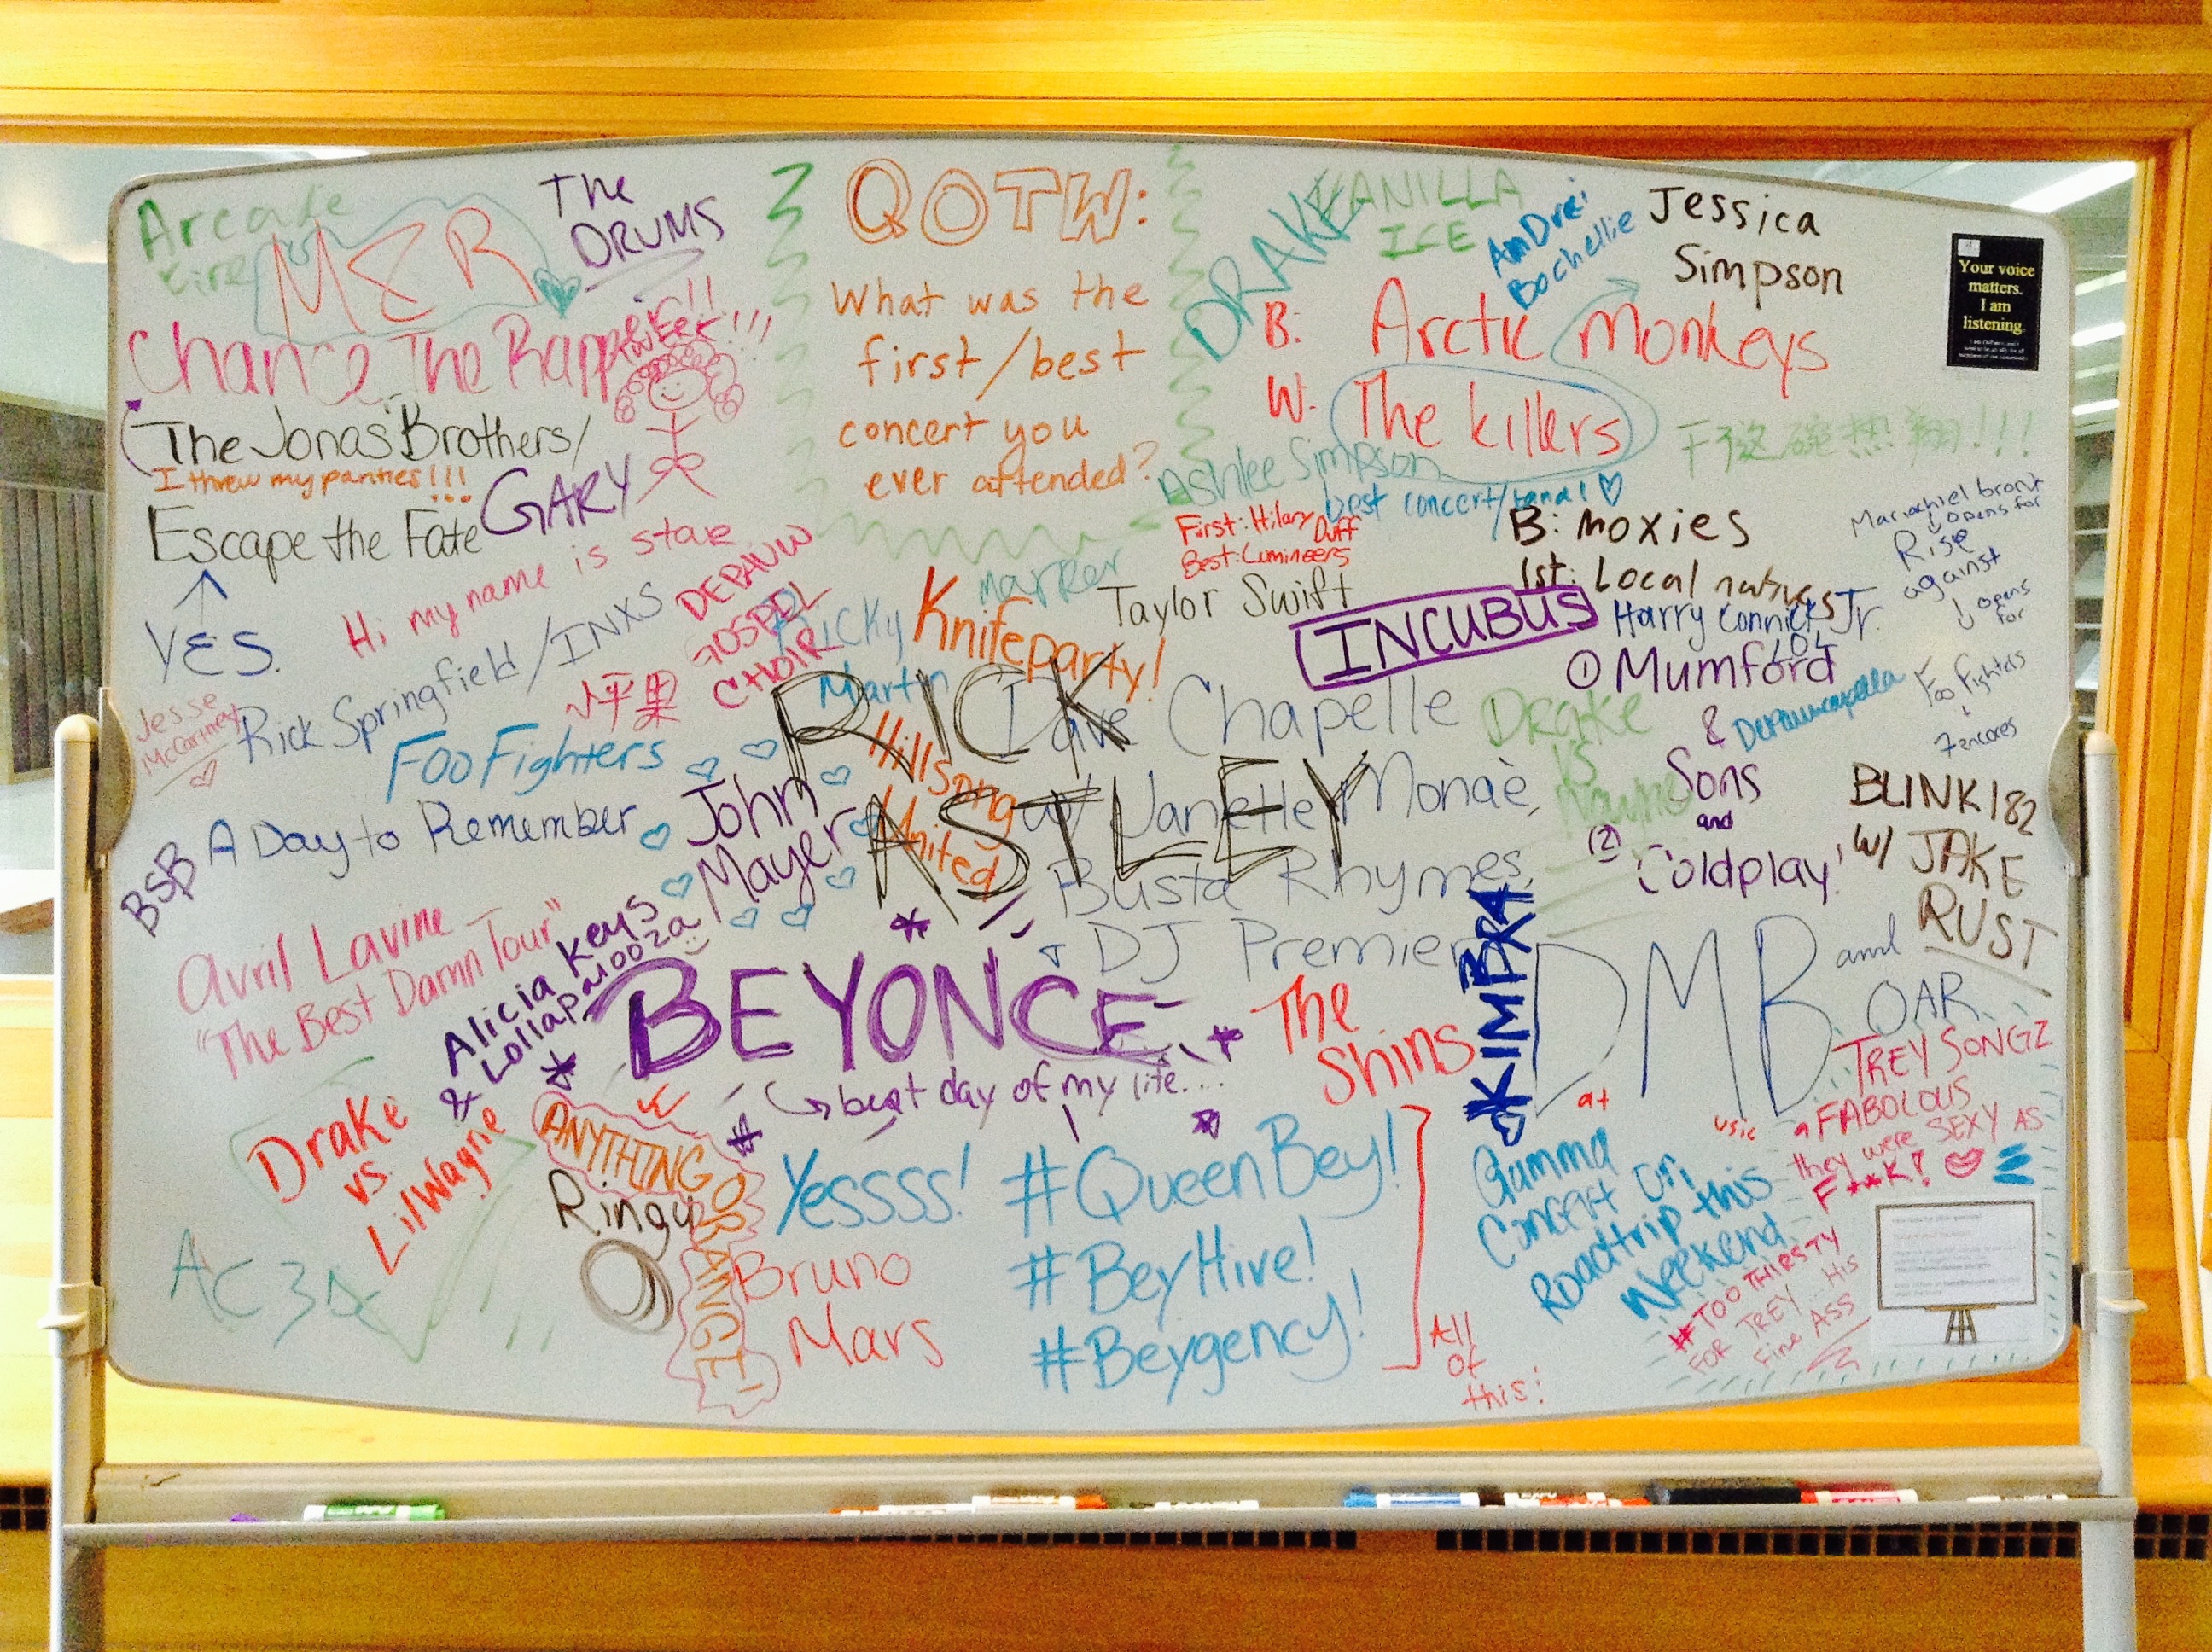 Arcade
fire
MER
The
DRUMS
Chance The Rapper!!
TWEEK!!!
The Jonas Brothers/
I threw my panties!!!
GARY
Escape the Fate
YES.
Hi my name is stove
DEPAUW
GOSPEL
CHOIR
Rick Springfield/INXS
Jesse
McCartney
Foo Fighters
A Day to Remember
BSB
John
Mayer
Avril Lavine
"The Best Damn Tour"
Alicia Keys
& Lollapalooza
Drake
vs.
Lil Wayne
AC 3
ANYTHING ORANGE!
Ringy
QOTW:
What was the
first/best
concert you
ever attended?
marker
Ricky
Martin
Knifeparty!
Taylor Swift
RICK
ASTLEY
Hillsong
United
Dave Chapelle
w/ Janelle Monaè,
Busta Rhymes,
+ DJ Premier
BEYONCE
best day of my life...
Yessss!
#QueenBey!
#BeyHive!
#Beygency!
All
of
this!
Bruno
Mars
The
Shins
DRAKE
VANILLA
ICE
AnDrei
Bochellie
Jessica
Simpson
B: Arctic Monkeys
W: The killers
Ashlee Simpson
best concert/band!
First: Hilary
Duff
Best: Lumineers
B: moxies
1st: Local natives
INCUBUS
Harry Connick Jr.
LOL
① Mumford
&
Sons
and
② Coldplay!
DePauwcapella
Drake
vs
Wayne
Mariachi el bronx
opens for
Rise
against
opens
for
Foo Fighters
7 encores
BLINK 182
w/ JAKE
RUST
KIMBRA
DMB and
OAR
TREY SONGZ
FABOLOUS
they were SEXY AS
F**K!
#TOO THIRSTY
FOR TREY HIS
Fine ASS
at
usic
Gamma
Concert
Roadtrip this
Weekend
Your voice
matters.
I am
listening.